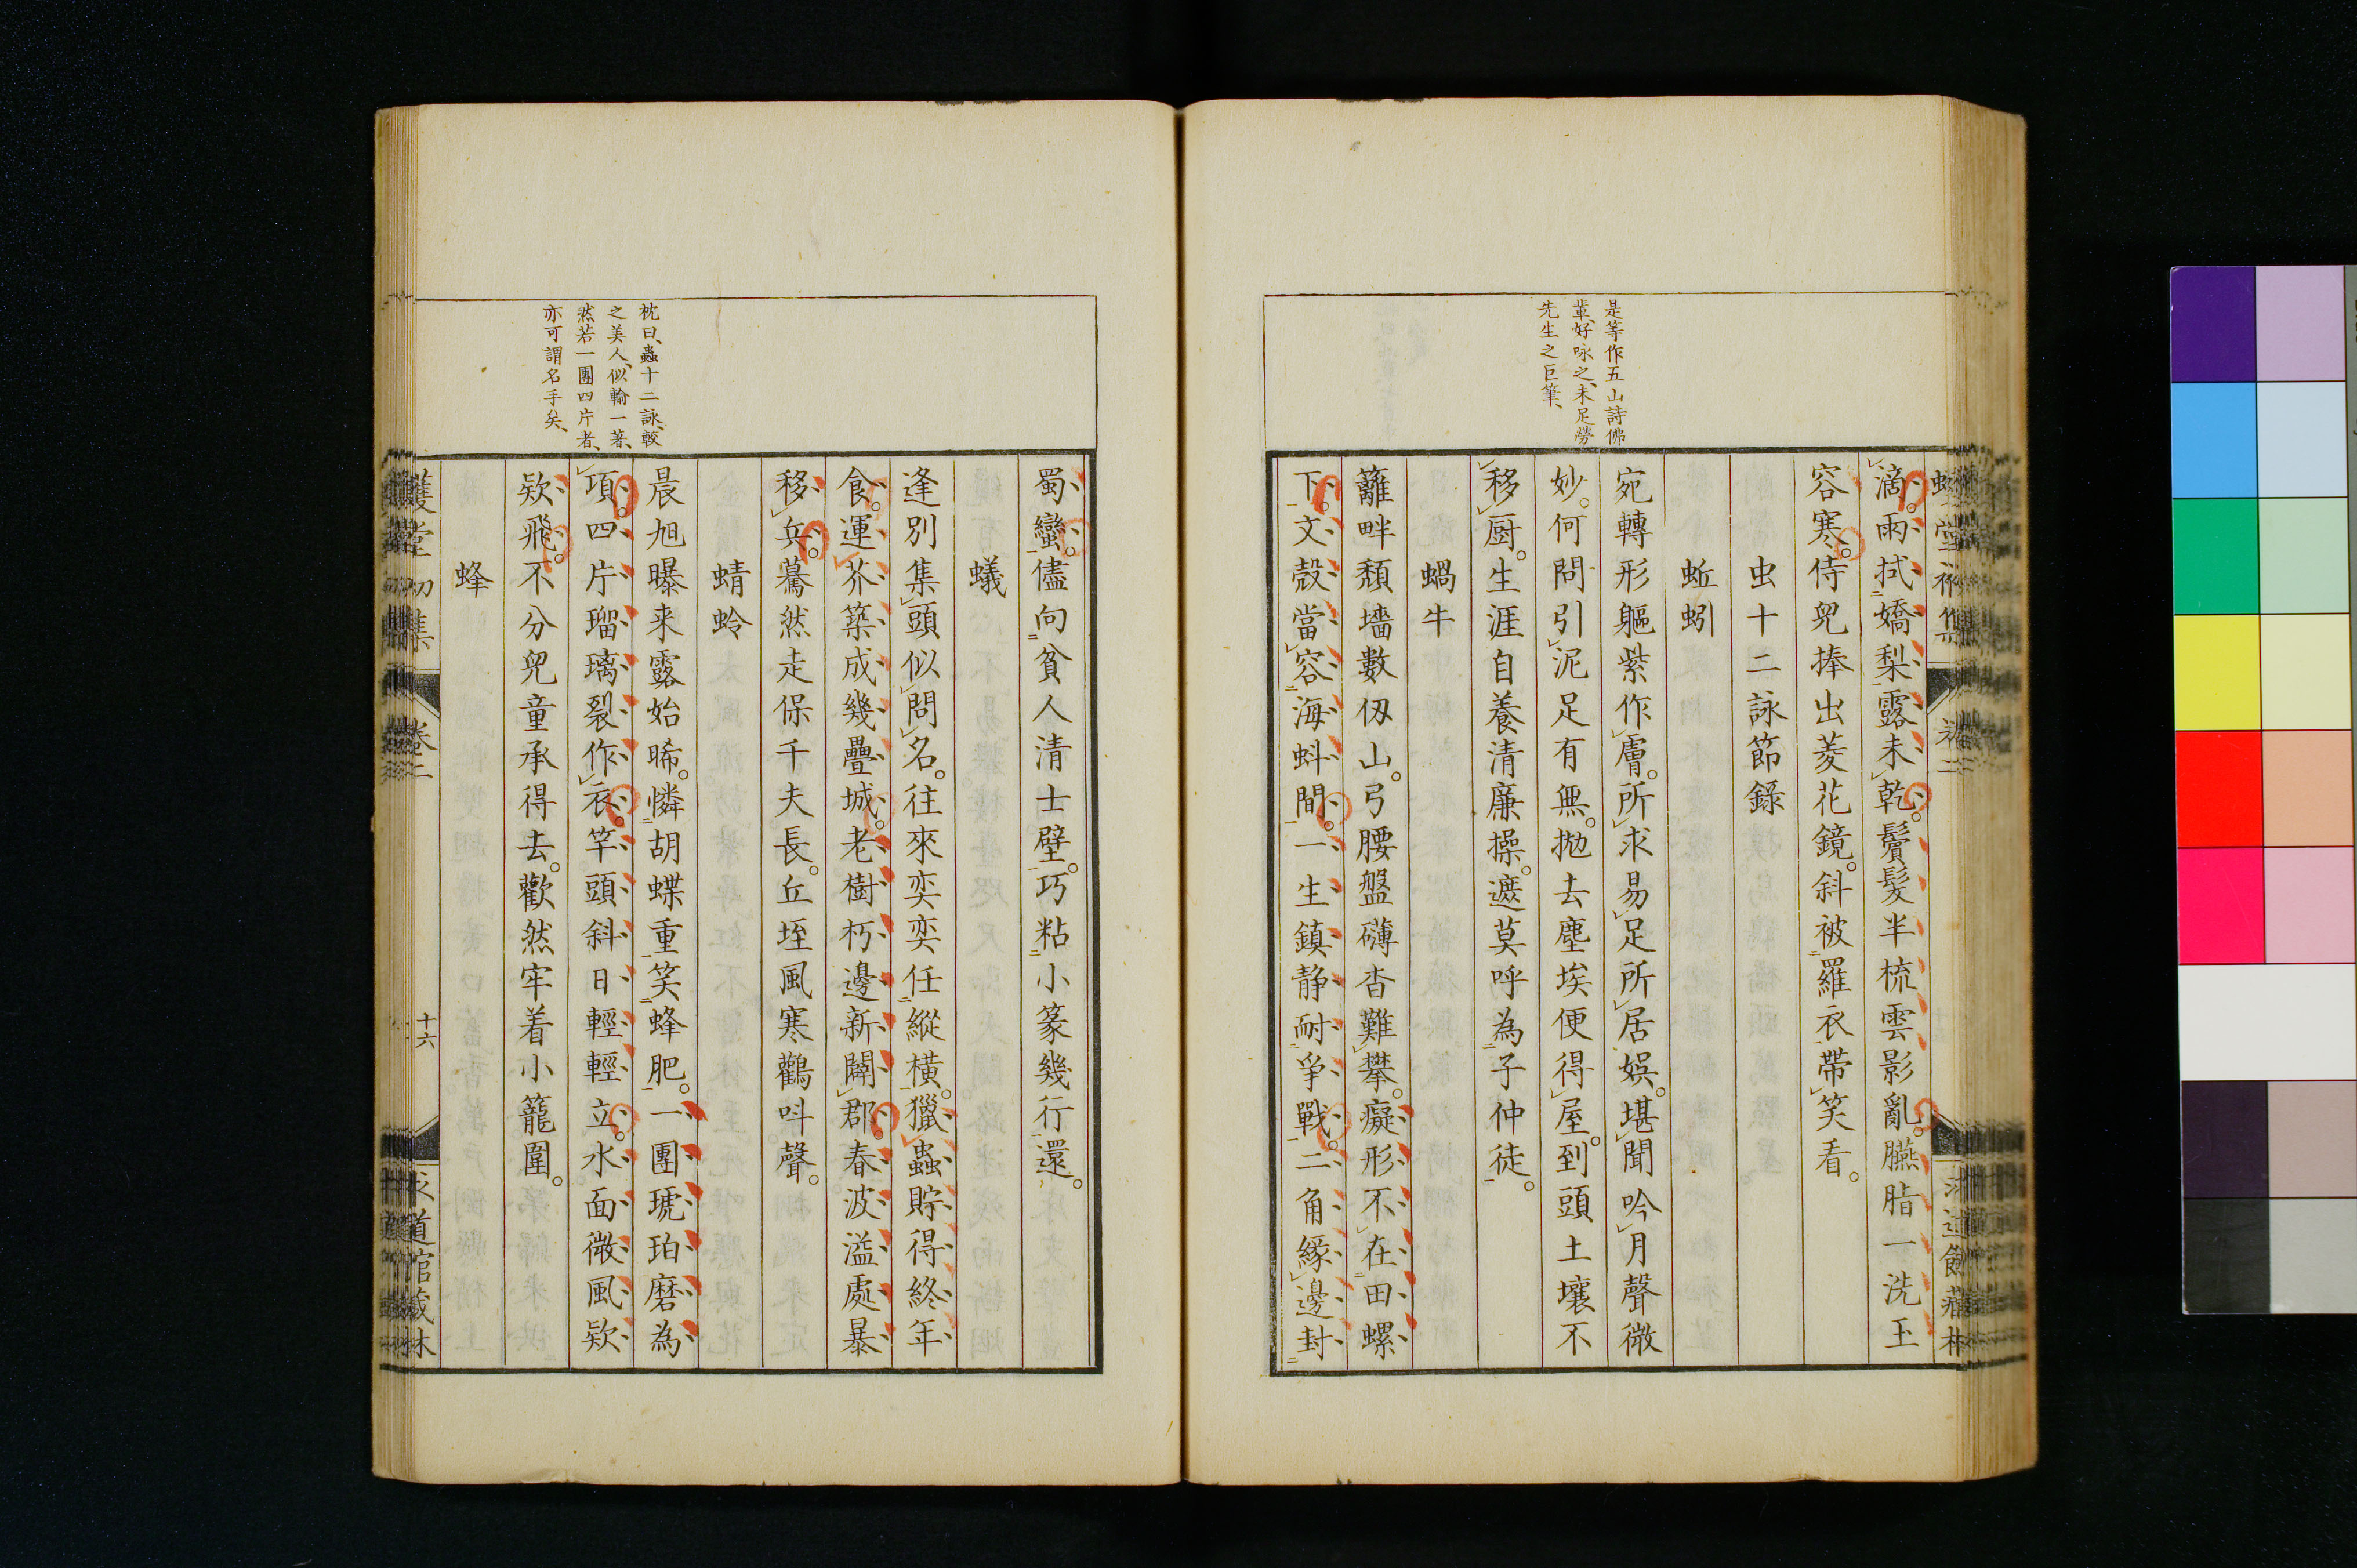 是等作五山詩佛
輩、好咏之、未足勞
先生之巨筆、
滴。雨拭嬌梨露未乾。鬢髮半梳雲影亂。臙脂一洗玉
容寒。侍兒捧出菱花鏡。斜被羅衣帶笑看。
虫十二詠節錄
蚯蚓
宛轉形軀紫作膚。所求易足所居娯。堪聞吟月聲微
妙。何問引泥足有無。抛去塵埃便得屋。到頭土壤不
移厨。生涯自養清廉操。遮莫呼為子仲徒。
蝸牛
籬畔頽墻數仭山。弓腰盤礴杳難攀。癡形不在田螺
下。文殼當容海蚪間。一生鎮静耐爭戰。二角緣邊封
枕曰、蟲十二詠、較
之美人、似輸一著、
然若一團四片者、
亦可謂名手矣、
蜀蠻。儘向貧人清士壁。巧粘小篆幾行還。
蟻
逢別集頭似問名。往來奕奕任縱横。獵蟲貯得終年
食。運芥築成幾疊城。老樹朽邊新闢郡。春波溢處暴
移兵。驀然走保千夫長。丘垤風寒鸛呌聲。
蜻蛉
晨旭曝来露始晞。憐胡蝶重笑蜂肥。一團琥珀磨為
項。四片瑠璃裂作衣。竿頭斜日輕輕立。水面微風欵
欵飛。不分兒童承得去。歡然牢着小籠圍。
蜂
卷二
十六